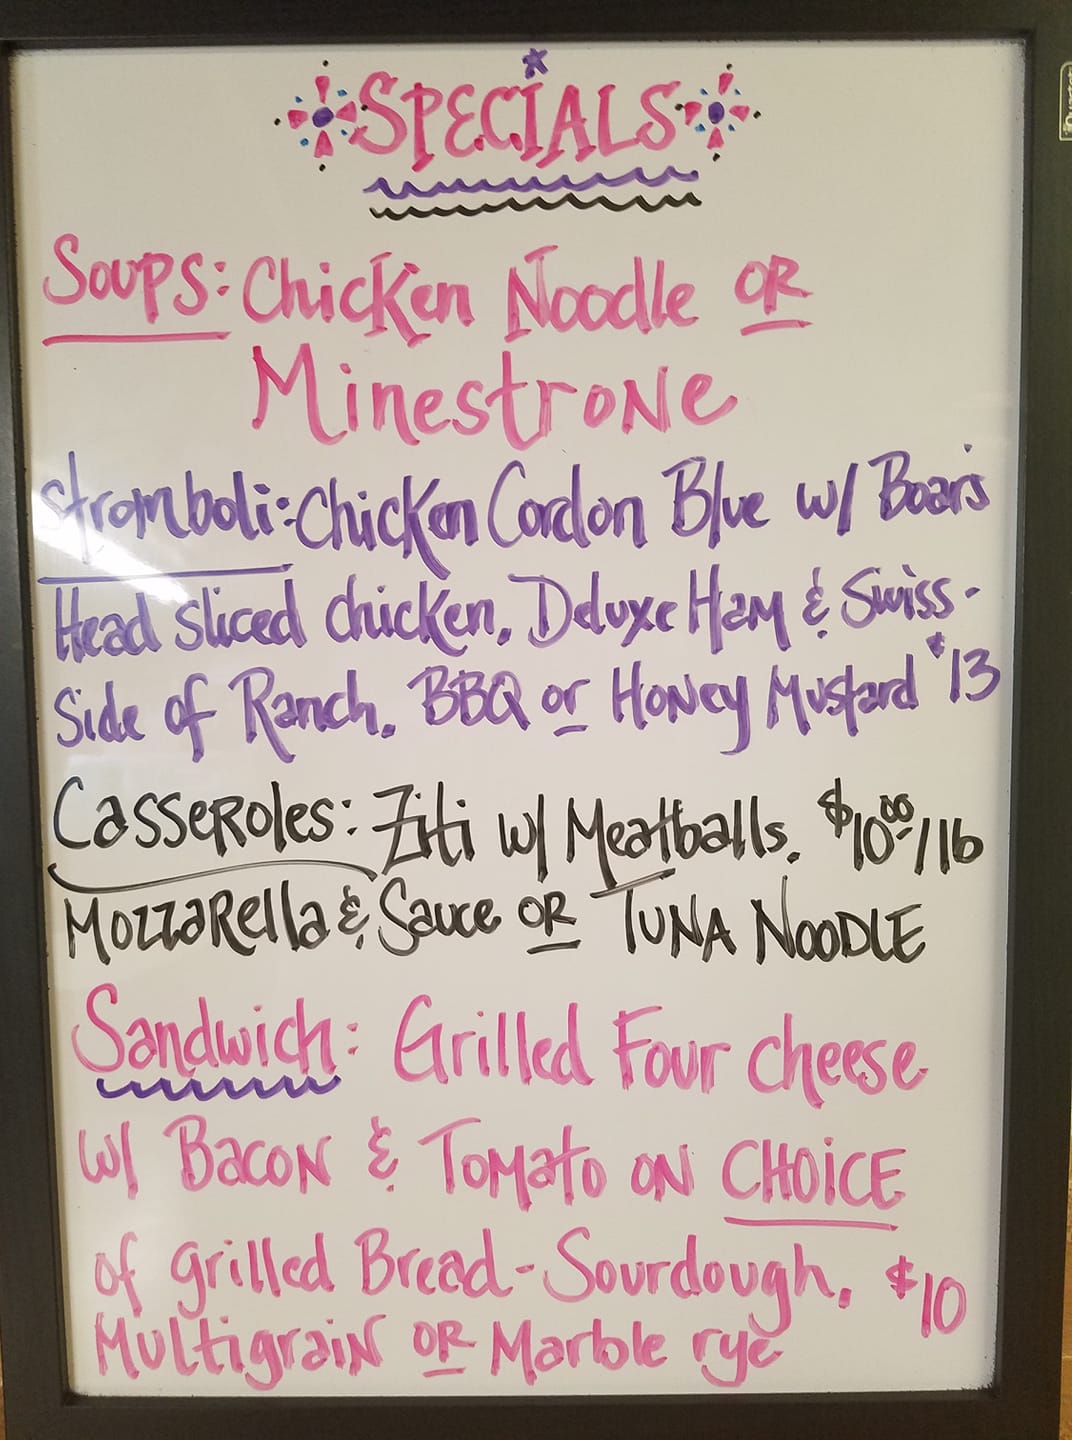 SPECIALS
Soups: Chicken Noodle OR
Minestrone
Stromboli: Chicken Cordon Blue w/ Boar's
Head sliced chicken, Deluxe Ham & Swiss -
Side of Ranch, BBQ or Honey Mustard $13
Casseroles: Ziti w/ Meatballs, $10.00/lb
Mozzarella & Sauce OR Tuna Noodle
Sandwich: Grilled Four cheese
w/ Bacon & Tomato on CHOICE
of grilled Bread - Sourdough, $10
Multigrain OR Marble rye
Quartet